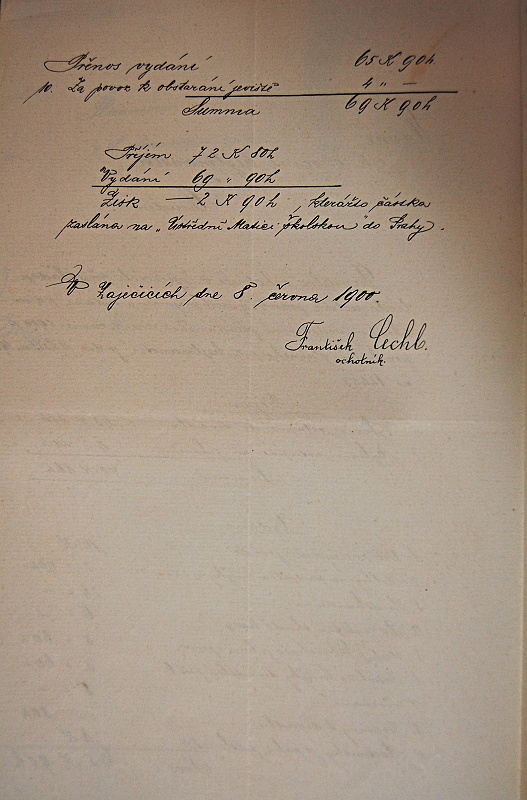 Přenos vydání 65 K 90h
10. Za povoz k obstarání jeviště 4 " —
Summa 69 K 90h
Příjem 72 K 80h
Vydání 69 " 90h
Zisk — 2 K 90h, kterážto částka
zaslána na „Ústřední Matici Školskou" do Prahy.
V Zaječicích dne 8. června 1900.
František Čechl.
ochotník.